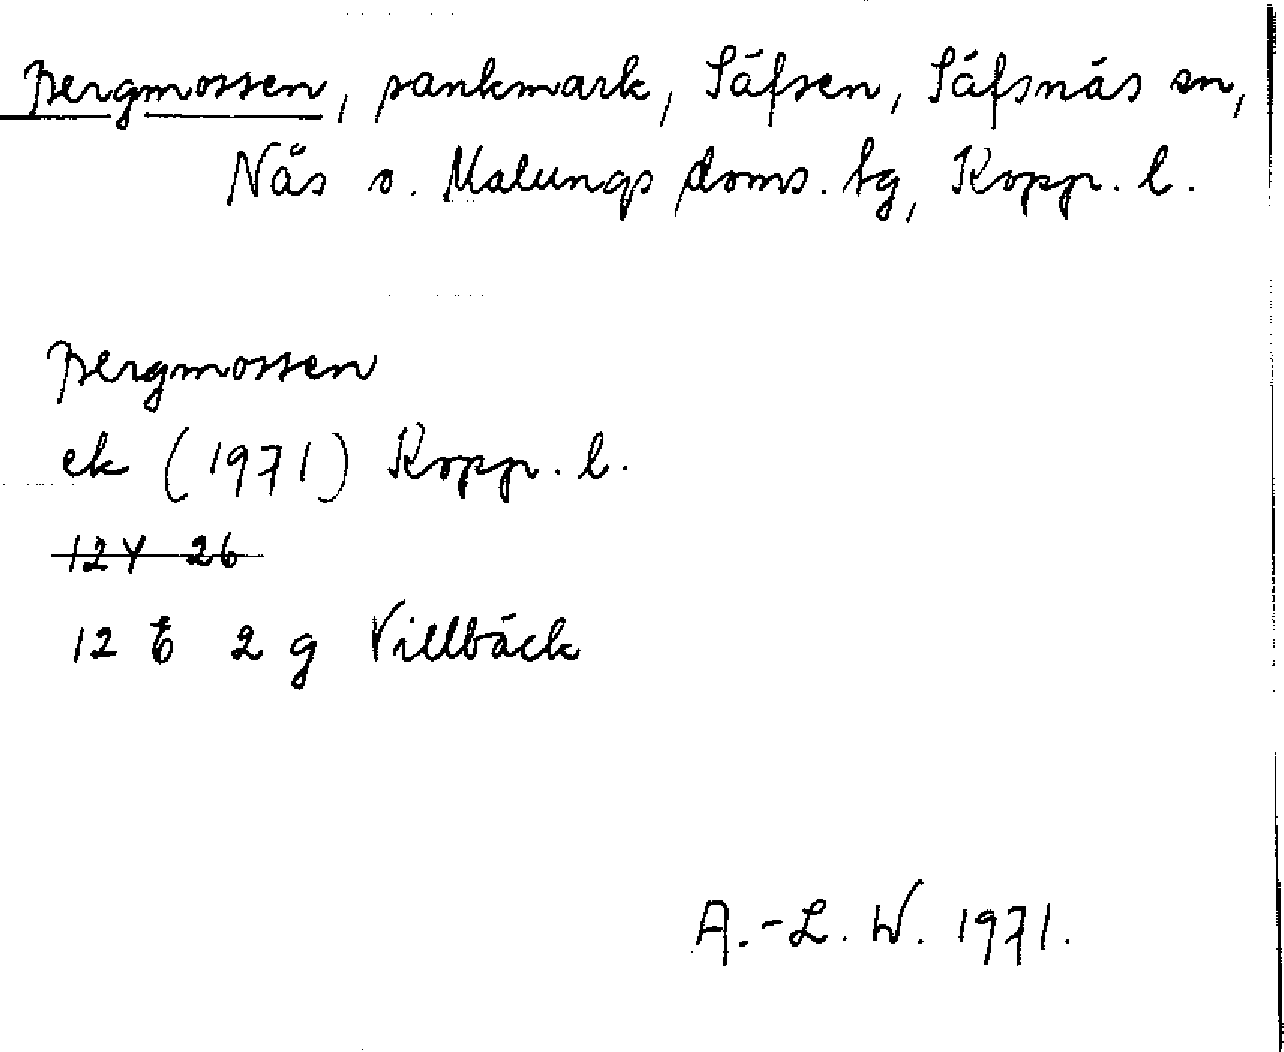 Bergmossen, sankmark, Säfsen, Säfsnäs sn,
Näs o. Malungs doms. tg, Kopp. l.
Bergmossen
ek (1971) Kopp. l.
12Y 26
12 E 2 g Villbäck
A.-L. W. 1971.